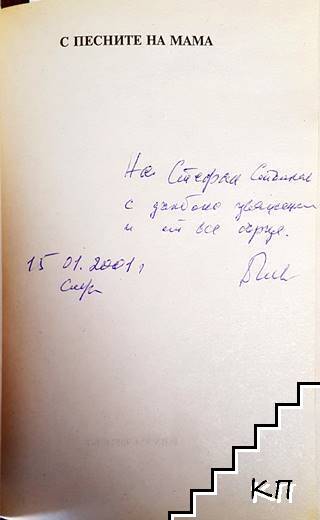 С ПЕСНИТЕ НА МАМА
На Стефан
с дълбоко уважение
и от все сърце.
15 01. 2001 г
КП